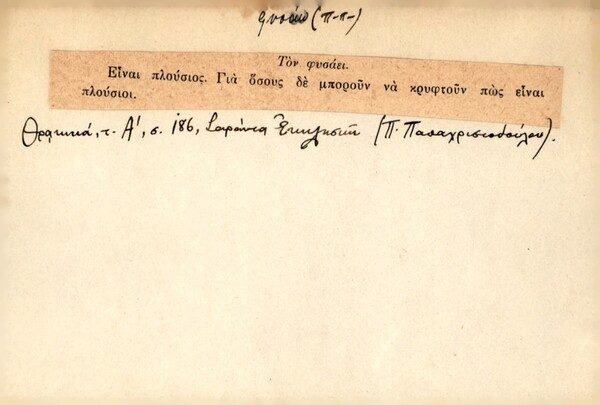 φυσάω (π-π-)
Τὸν φυσάει.
Εἶναι πλούσιος. Γιὰ ὅσους δὲ μποροῦν νὰ κρυφτοῦν πὼς εἶναι
πλούσιοι.
Θρακικά, τ. Α', σ. 186, Σαράντα Ἐκκλησιῶν (Π. Παπαχριστοδούλου).